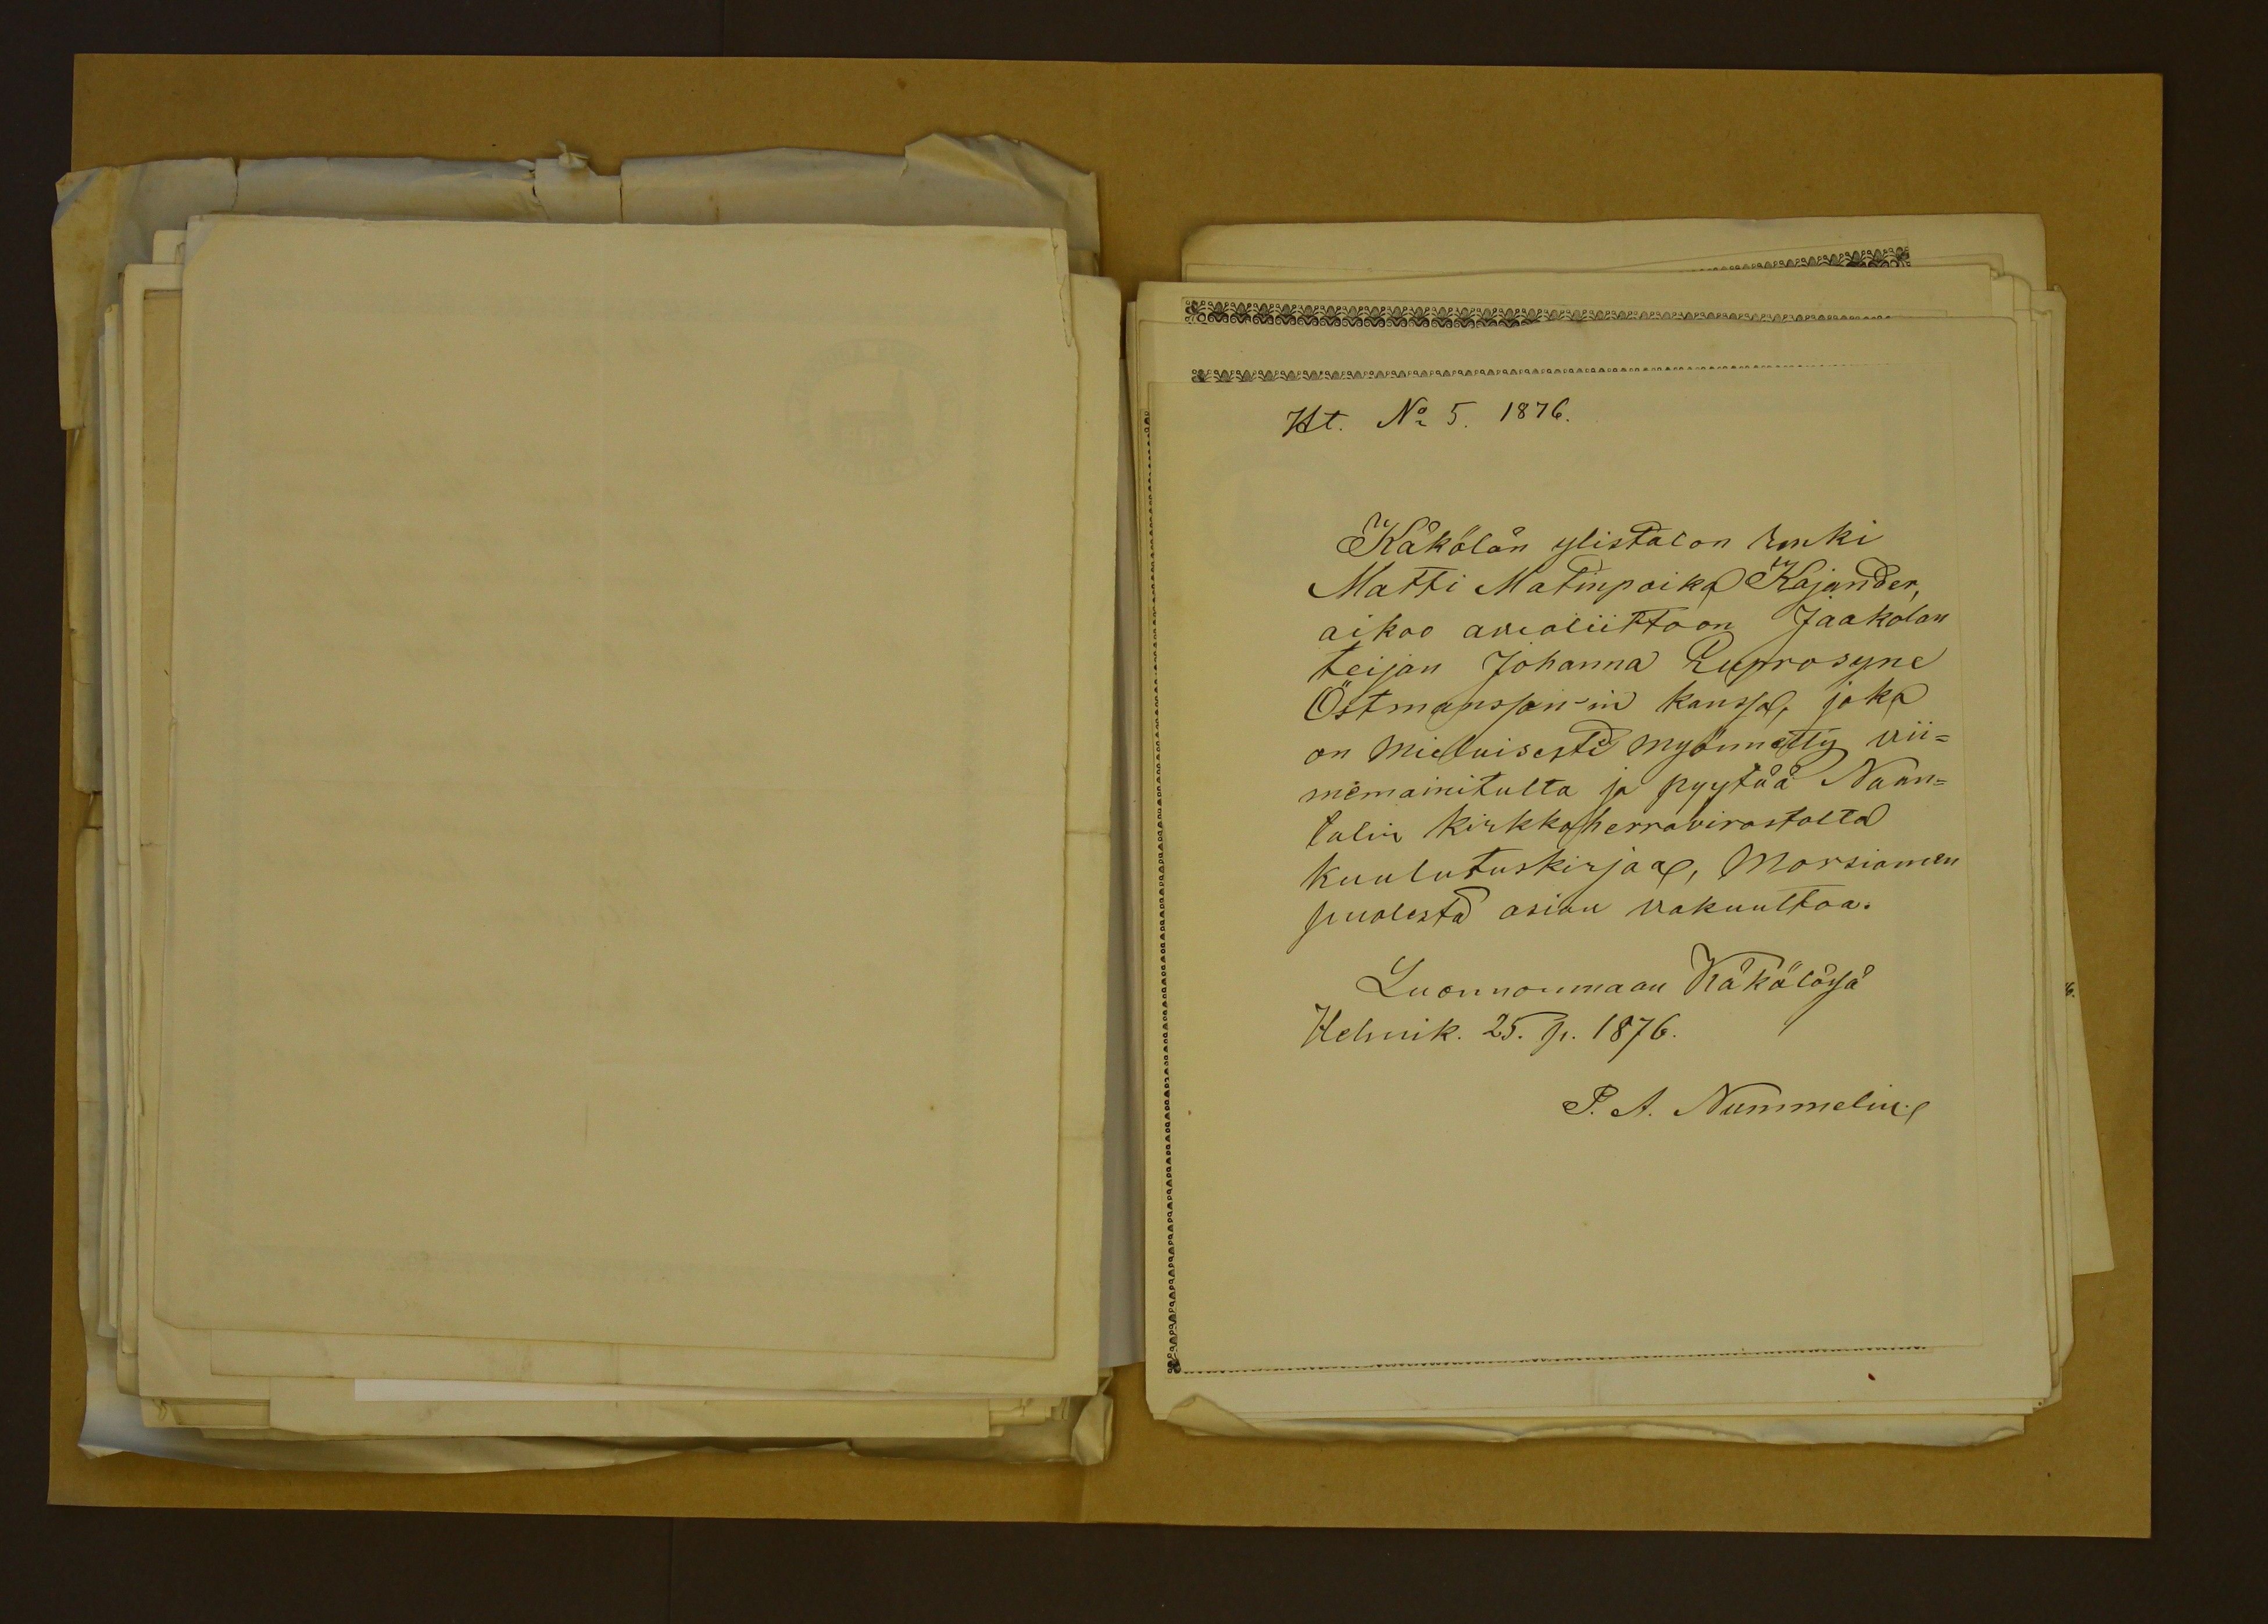 Ht. No 5. 1876.
Käkölän ylistalon renki
Matti Matinpoika Kajander,
aikoo avioliittoon Jaakolan
teijan Johanna Euprosyne
Östmansson-in kanssa, joka
on mieluisesti myönnetty vii=
memainitulta ja pyytää Naan=
talin kirkkoherravirastolta
kuulutuskirjaa, Morsiamen
puolesta asian vakuuttaa.
Luonnonmaan Käkölässä
Helmik. 25. p. 1876.
P. A. Nummelin